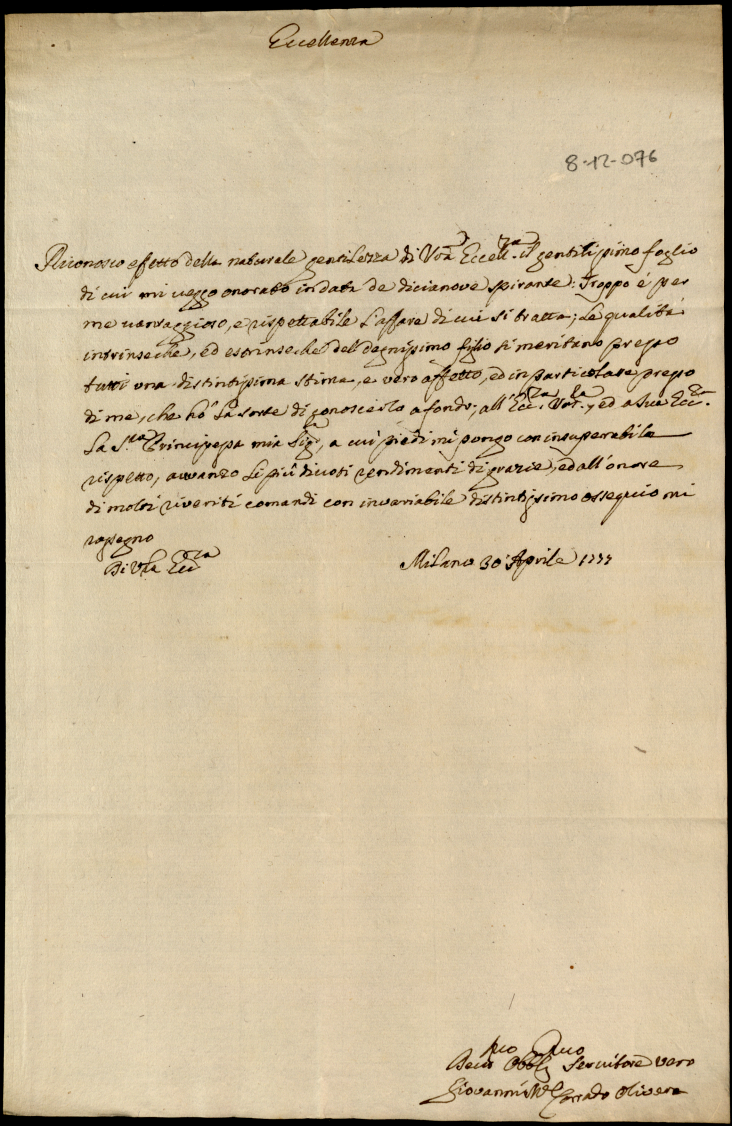 Eccellenza
8-12-076
Riconosco efetto della naturale gentilezza di Vrã Eccell.za il gentilissimo foglio
di cui mi veggo onorato in data de dicianove spirante: Troppo é per
me vantaggioso, e rispettabile l'affare di cui si tratta; Le qualità
intrinseche, ed estrinseche del degnissimo figlio si meritano presso
tutti una distintissima stima, e vero affetto, ed in particolare presso
di me, che hó la sorte di conoscerlo a fondo; all' Ecc.za Vost.ra, ed a Sua Ecc.za
La S.ra Principessa mia Sig.ra, a cui piedi mi pongo con insuperabile
rispetto, avvanzo li piú divoti rendimenti di grazie, ed all'onore
di molti riveriti comandi con invariabile distintissimo ossequio mi
rassegno
Di Vra Ecc.za
Milano 30 Aprile 1777
Servitore vero
Giovanni Corrado Olivera